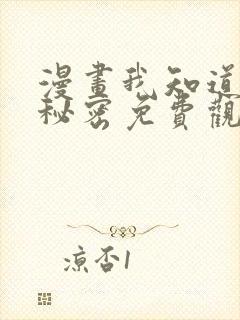 漫畫我知道
秘密免費觀
涼否1